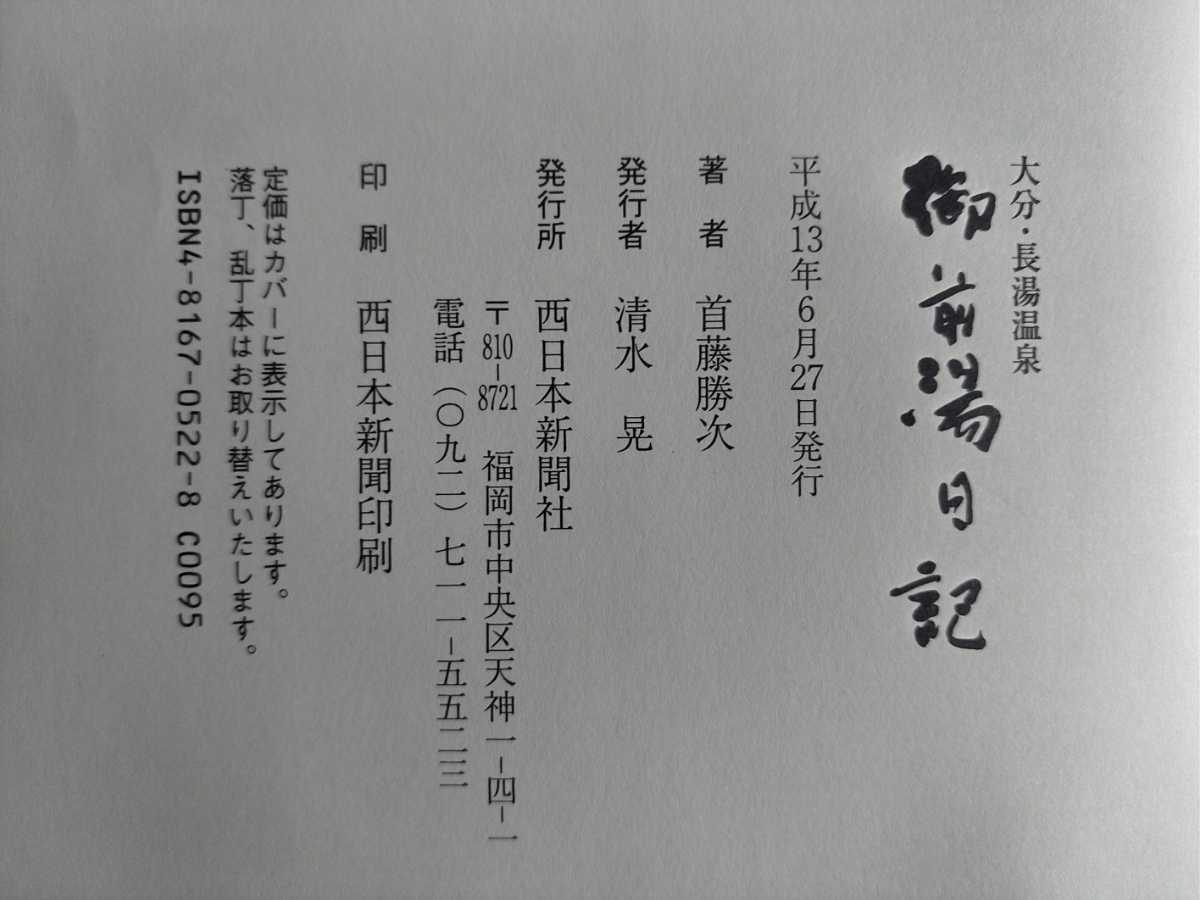 大分・長湯温泉
御前湯日記
平成13年6月27日発行
著者 首藤勝次
発行者 清水 晃
発行所 西日本新聞社
〒810-8721 福岡市中央区天神一-四-一
電話(〇九二)七一一-五五二三
印刷 西日本新聞印刷
定価はカバーに表示してあります。
落丁、乱丁本はお取り替えいたします。
ISBN4-8167-0522-8 C0095